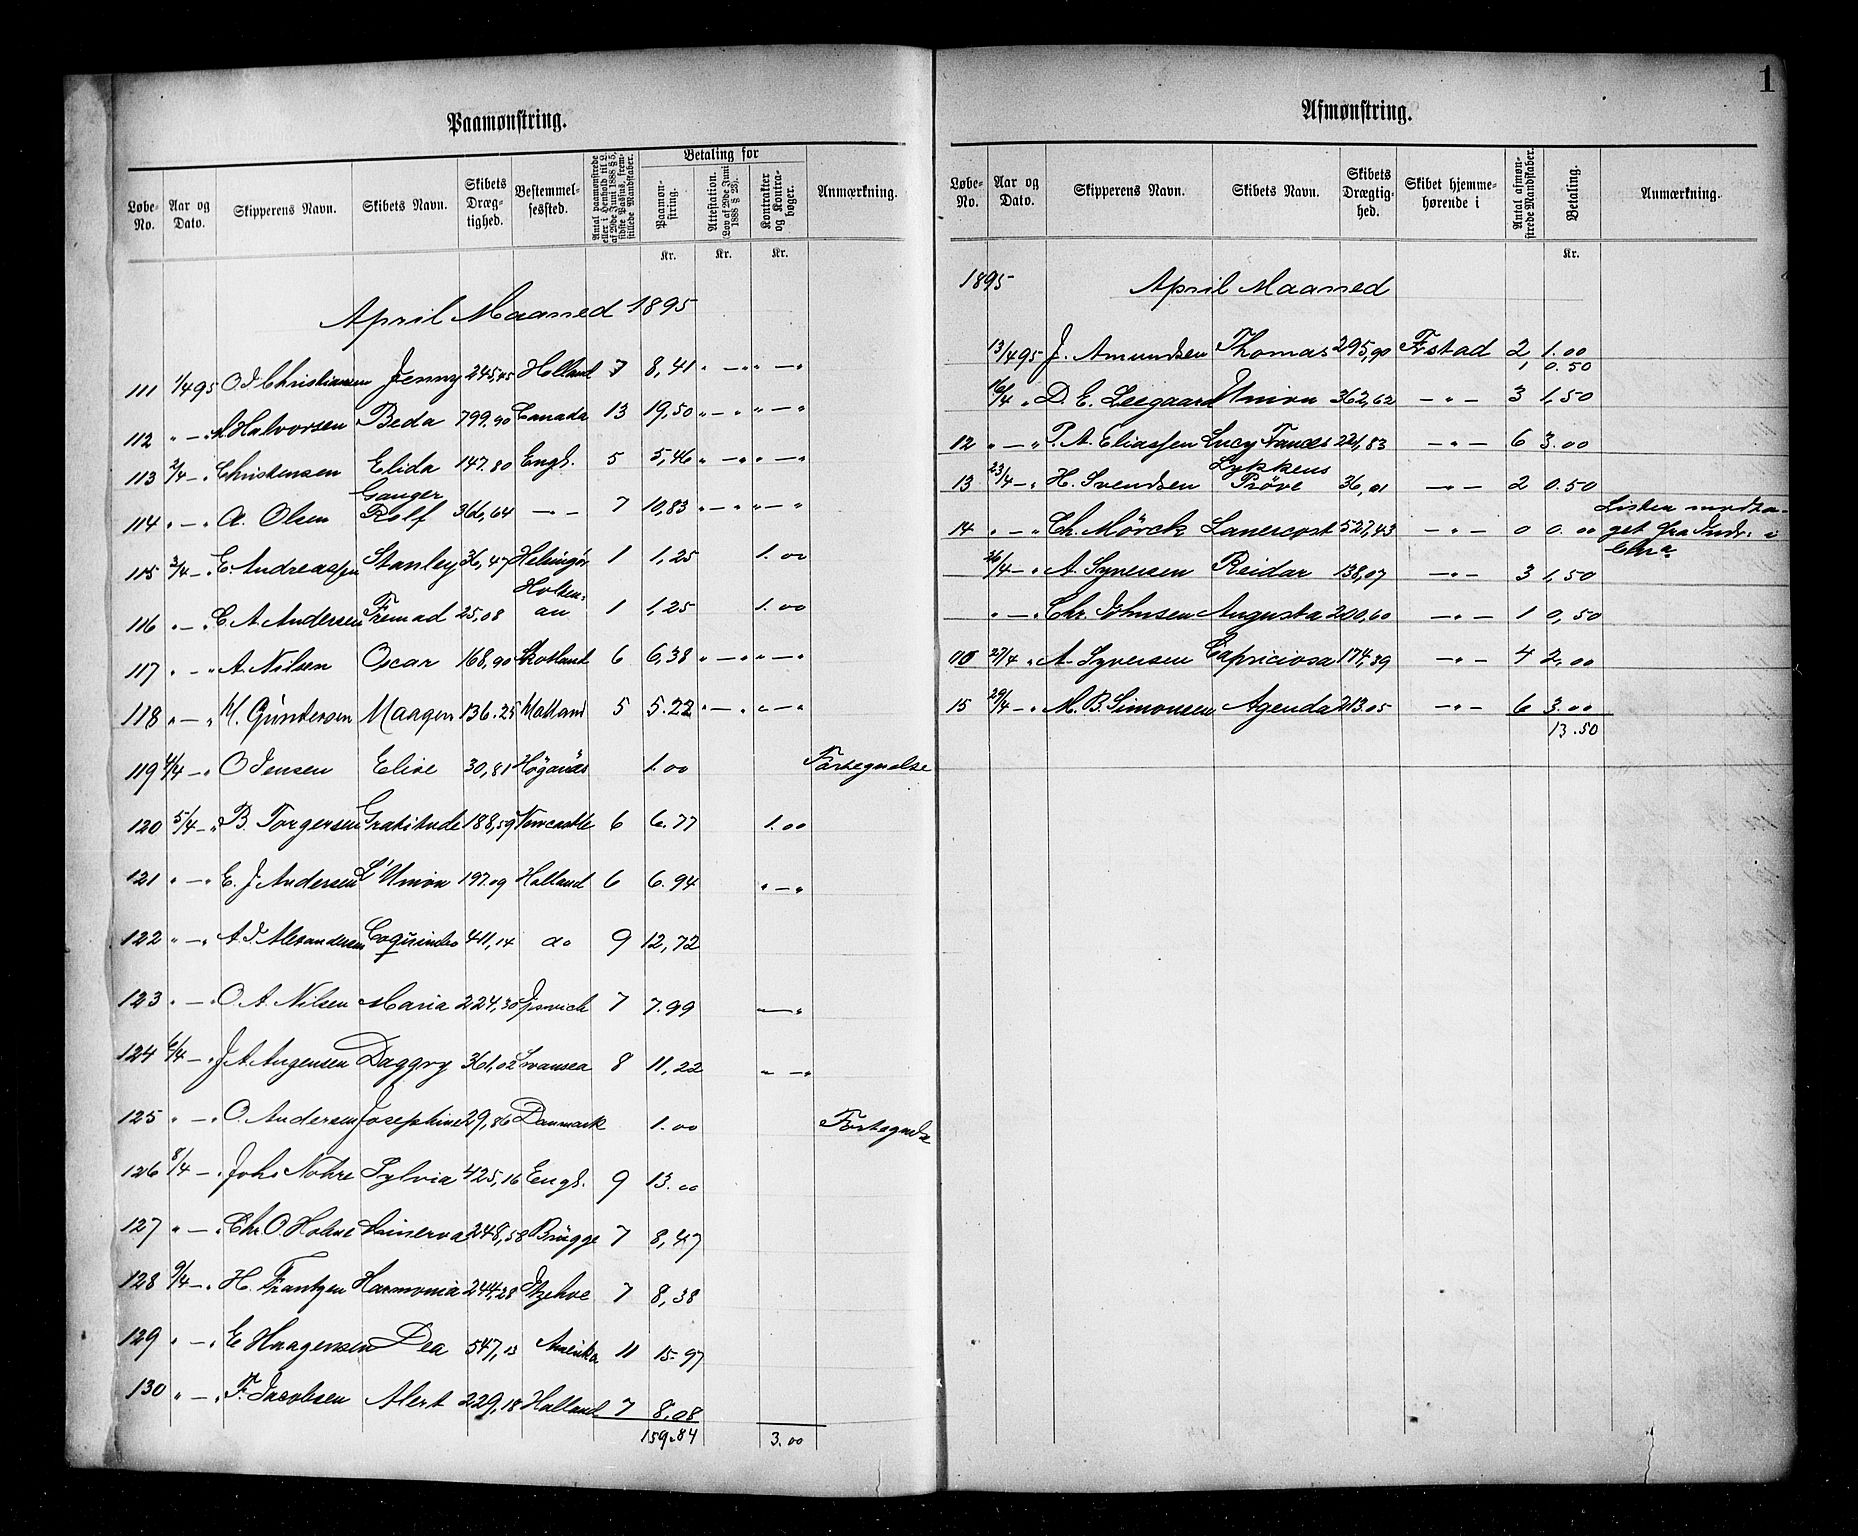 1
Paamønstring.
Løbe-No. Aar og Dato. Skipperens Navn. Skibets Navn. Skibets Dræg-tighed. Bestemmel-sessted. Antal paamønstrede eller i Henhold til L. af 29de Juni 1888 § 5, sidste Passus, frem-stillede Mandskaber. Betaling for Paamøn-string. Attestation. Lov af 29de Juni 1888 § 23). Kontrakter og Kontra-bøger. Anmærkning.
Kr. Kr. Kr.
April Maaned 1895
111 1/4 95 O I Christiansen Jenny 245,45 Holland 7 8,41 " — " " — "
112 " — " Halvorsen Beda 799.90 Canada 13 19.50 " — " " — "
113 2/4 — " Christensen Elida 147.80 Engl. 5 5,46 " — " " — "
114 " — " A. Olsen Ganger Rolf 366,64 — " — 7 10,83 " — " " — "
115 3/4 — " E. Andreassen Stanley 36,47 Helsingör 1 1,25 1.00
116 " — " C. A. Andersen Fremad 25,08 Holten:au 1 1.25 1.00
117 " — " A. Nilsen Oscar 168,90 Skotland 6 6,38 " — " " — "
118 " — " M. Gundersen Maagen 136.25 Holland 5 5.22 " — " " — "
119 4/4 — " O Jensen Elise 30,81 Höganäs 1.00 Fortegnelse
120 5/4 — " B. Torgersen Gratitude 188,59 Newcastle 6 6.77 1.00
121 " — " E. J. Andersen L'Union 197.09 Holland 6 6.94 " — "
122 " — " A. I Alexandersen Coquimbo 411,14 do 9 12,72
123 " — " O. A. Nilsen Maria 224,30 Ipswich 7 7.99 " — "
124 6/4 — " J A Augensen Daggry 361,02 Swansea 8 11,22 " — "
125 " — " O. Andersen Josephine 29,86 Danmark 1.00 Fortegnelse
126 8/4 — " Johs Nohre Sylvia 425,16 Engl. 9 13.00
127 " — " Chr. O. Holme Minerva 248,58 Brügge 7 8,47
128 9/4 — " H. Frantzen Harmonia 244,28 Itzehoe 7 8,38
129 " — " E Haagensen Dea 547,13 Amerika 11 15.97
130 " — " F. Jacobsen Alert 229,18 Holland 7 8.08
159.84 3.00
Afmønstring.
Løbe-No. Aar og Dato. Skipperens Navn. Skibets Navn. Skibets Drægtig-hed. Skibet hjemme-hørende i Antal afmøn-strede Mandskaber. Betaling. Anmærkning.
Kr.
1895 April Maaned
13/4 95 J. Amundsen Thomas 295,90 Fstad 2 1.00
1 0.50
16/4 " D. E. Leegaard Union 362,62 — " — 3 1,50
12 " — " P. A. Eliassen Lucy Fances 221,83 — " — 6 3.00
13 23/4 — " H. Svendsen Lykkens Pröve 36,01 — " — 2 0.50
14 " — " Ch. Mörck Lanercost 527,43 — " — 0 0.00 Listen modta-get fra Indr: i
26/4 — " A. Syversen Reidar 138,07 — " — 3 1,50
" — " Chr. Johnsen Augusta 200,60 — " — 1 0,50
27/4 " A. Syversen Capriciosa 174,39 — " — 4 2,00
15 29/4 — " M. B. Simonsen Agenda 213.05 — " — 6 3.00
13.50